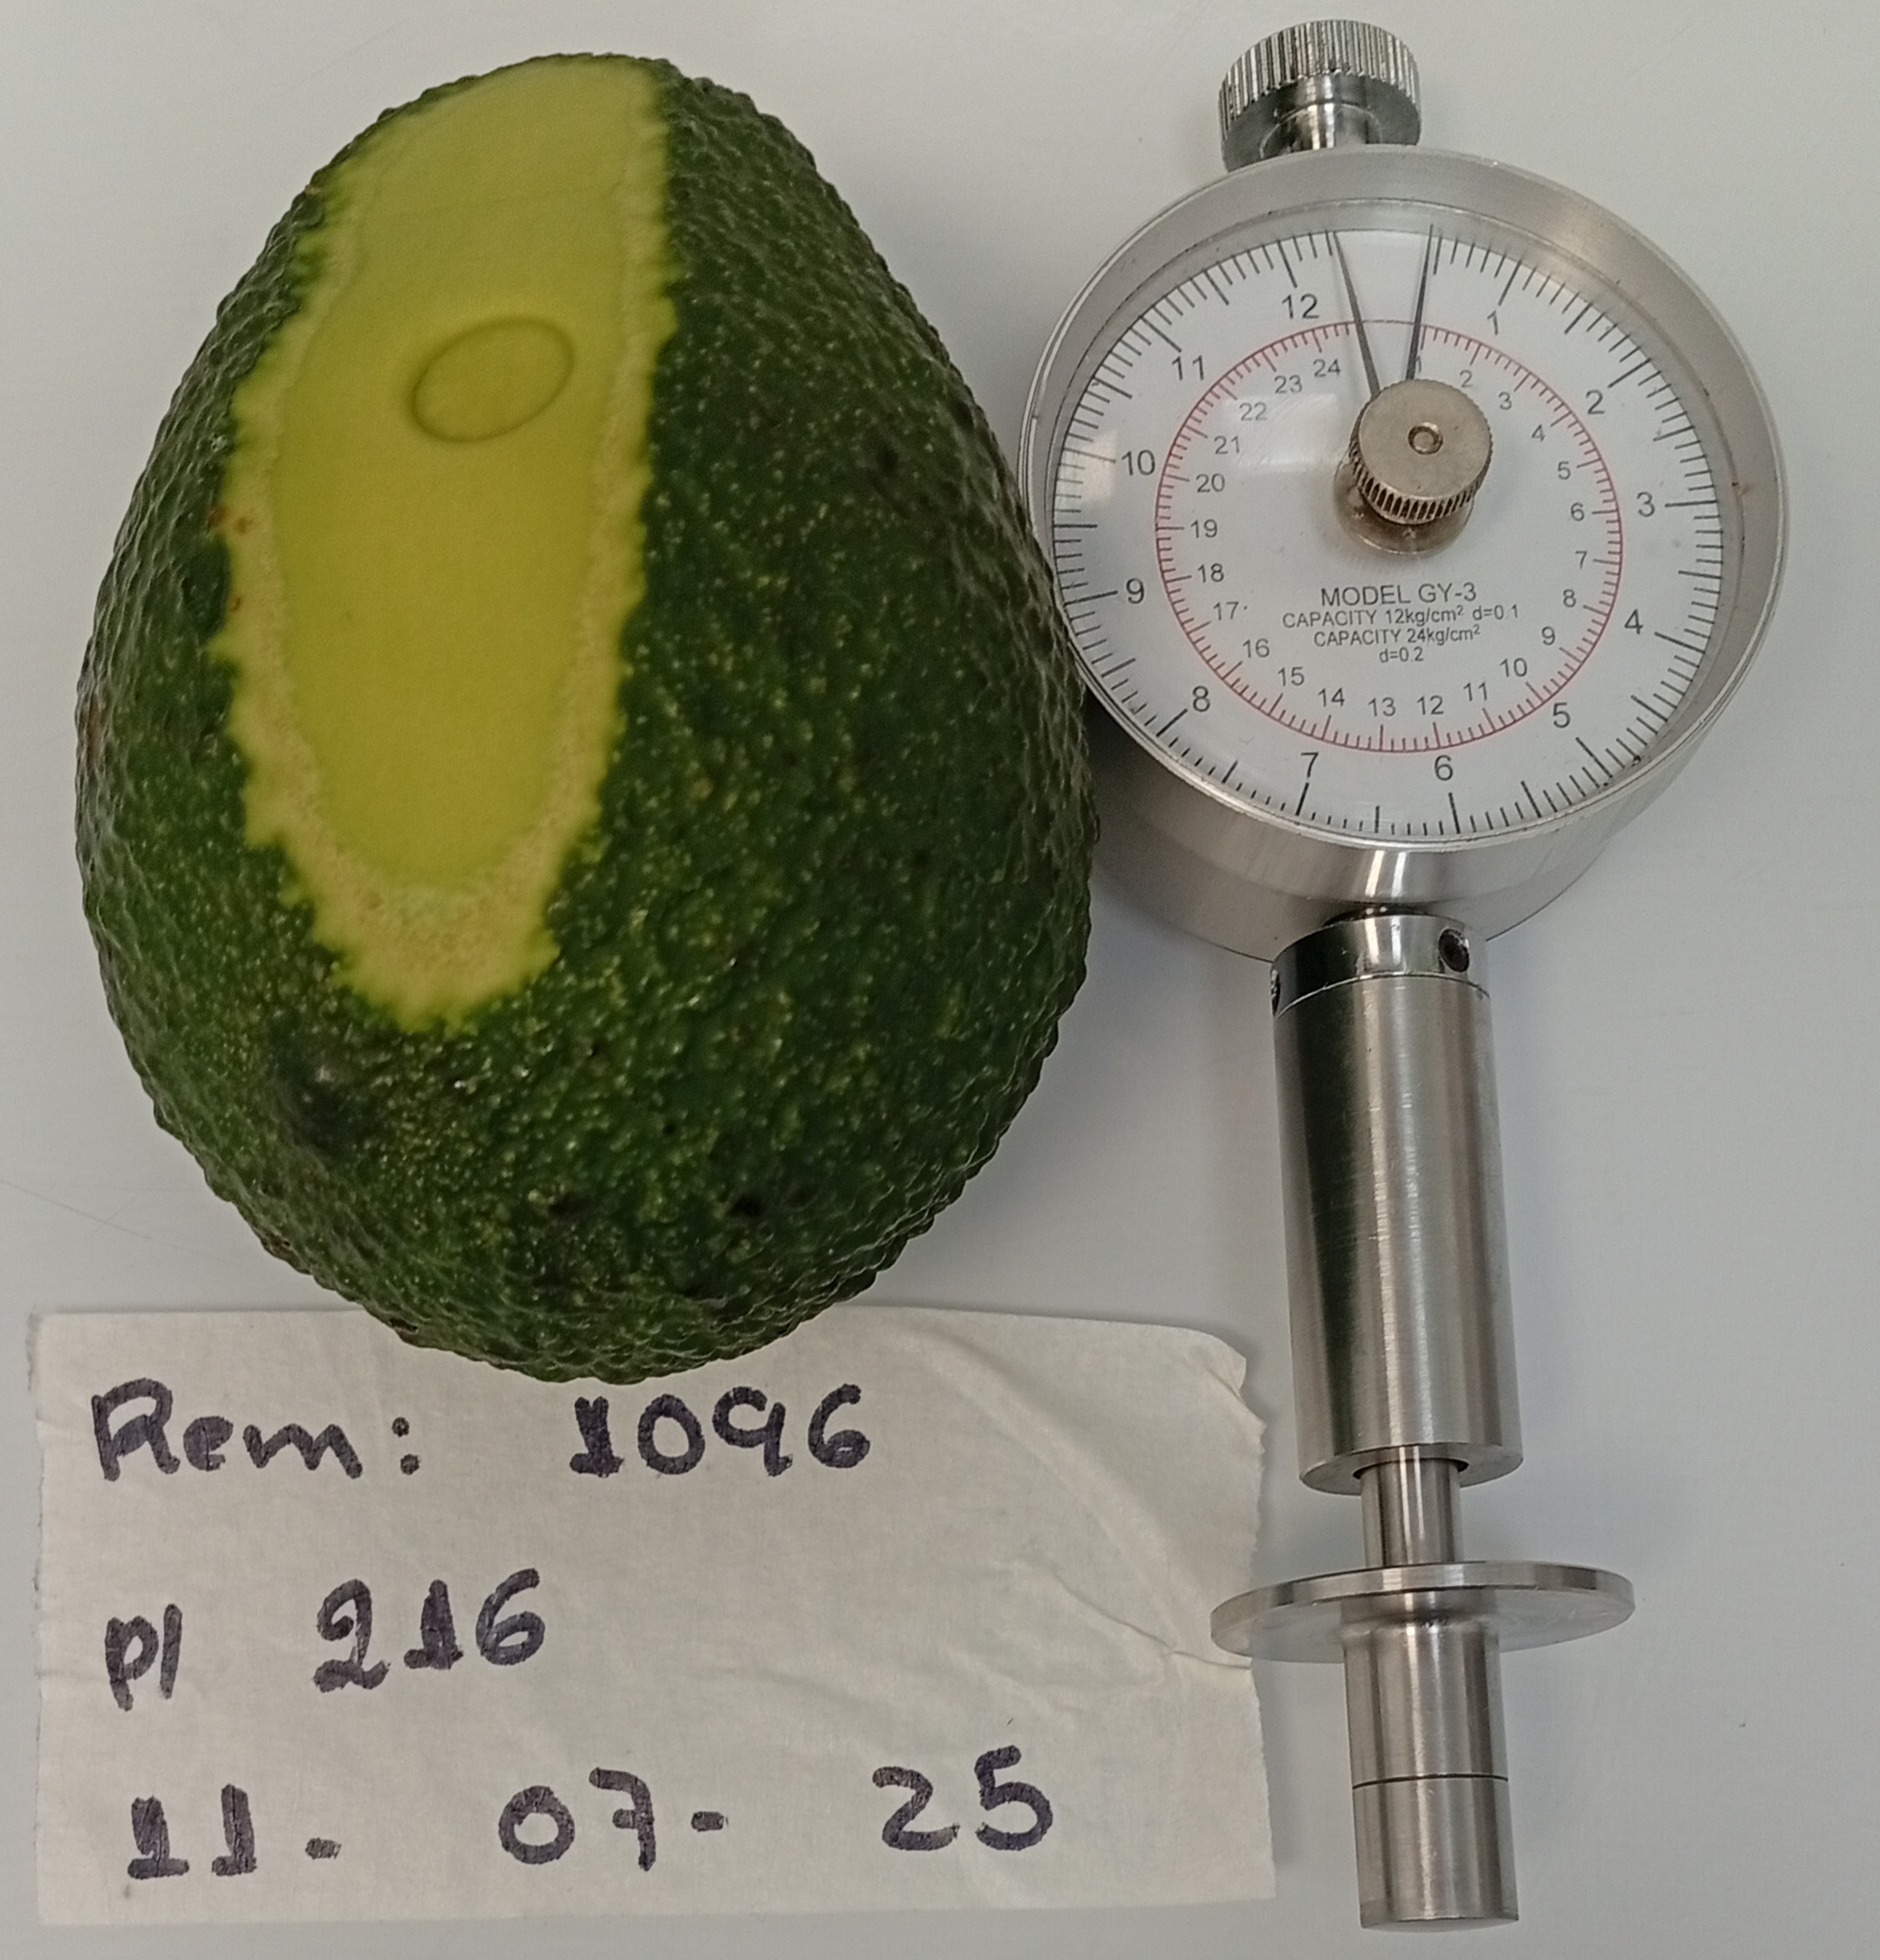 12 1 2 3 4 5 6 7 8 9 10 11
24 1 2 3 4 5 6 7 8 9 10 11 12 13 14 15 16 17 18 19 20 21 22 23
MODEL GY-3
CAPACITY 12kg/cm² d=0.1
CAPACITY 24kg/cm²
d=0.2
Rem: 1096
pl 216
11- 07- 25